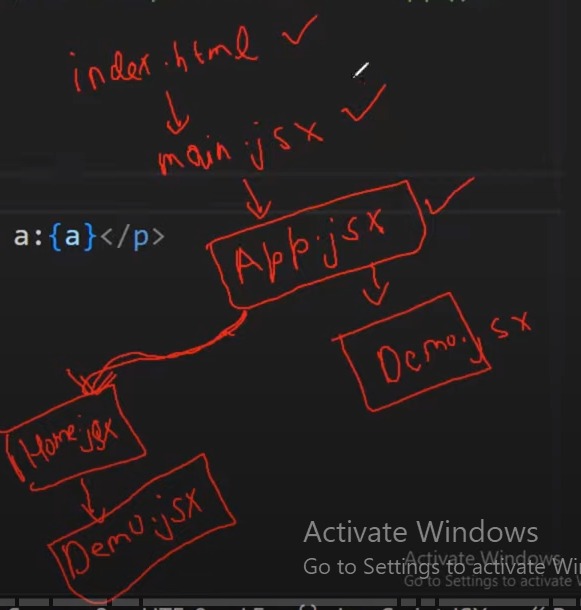 index.html
main.jsx
App.jsx
a:{a}</p>
Demo.jsx
Home.jsx
Demo.jsx
Activate Windows
Go to Settings to activate Wi
Activate Windows
Go to Settings to activate